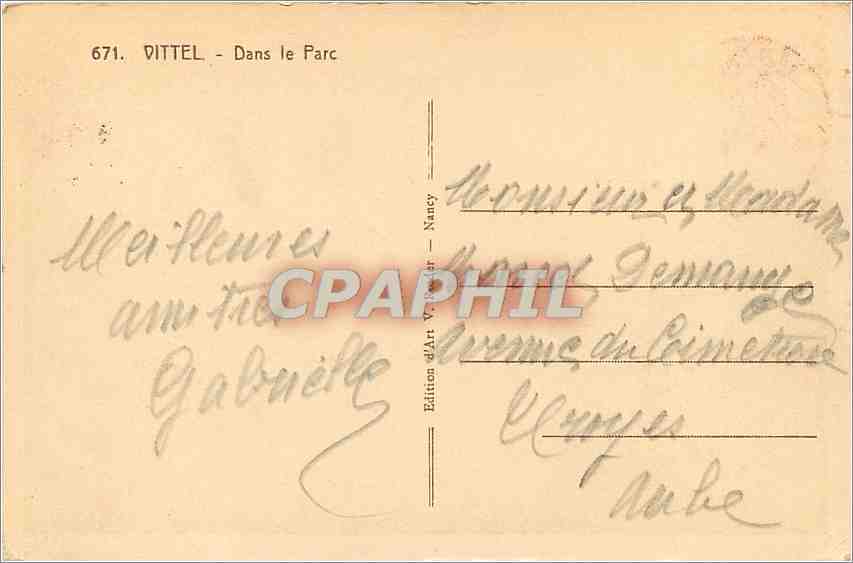 671. VITTEL. - Dans le Parc
Meilleures
amitiés
Gabrielle
Edition d'Art V. — Nancy
Monsieur et Madame
Demange
Avenue du Cimetière
Troyes
Aube
CPAPHIL